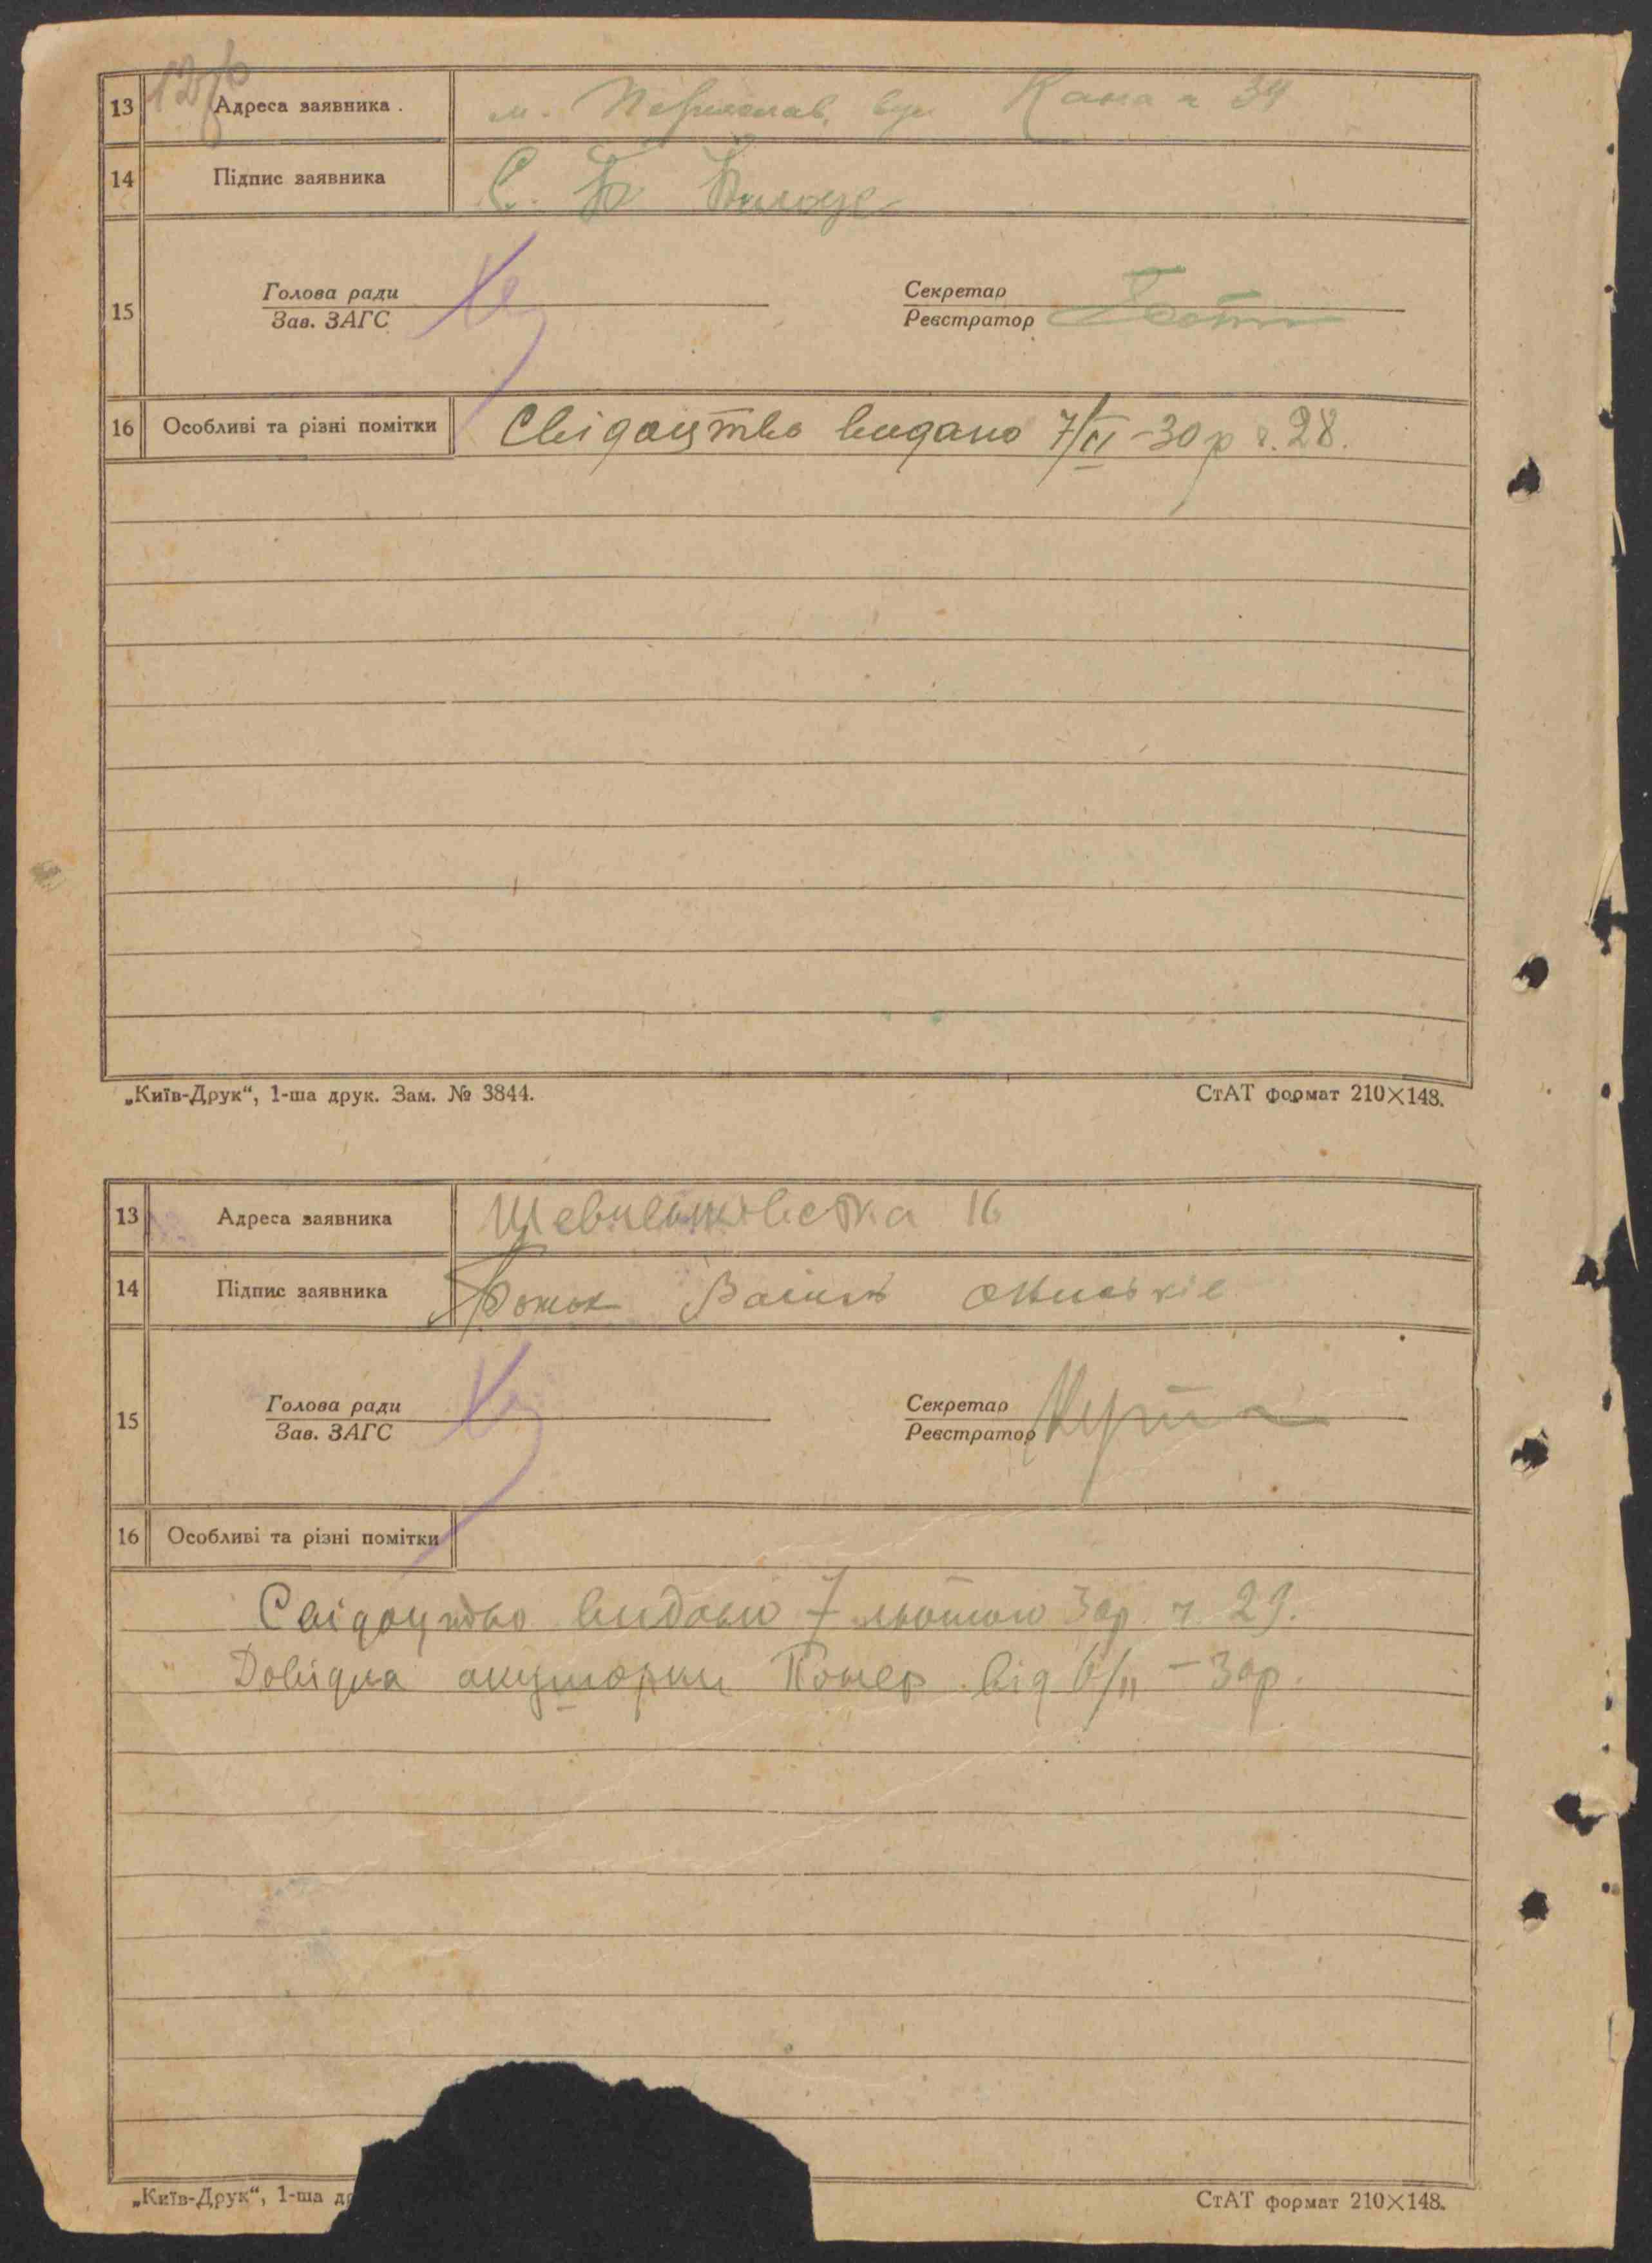 13 Адреса заявника. м. вул. 34
14 Підпис заявника С. Б
Голова ради Секретар
15
Зав. ЗАГС Реєстратор
16 Особливі та різні помітки Свідоцтво видано 7/II-30 р ч. 28.
„Київ-Друк“, 1-ша друк. Зам. № 3844. СтАТ формат 210×148.
13 Адреса заявника 16
14 Підпис заявника
Голова ради Секретар
15
Зав. ЗАГС Реєстратор
16 Особливі та різні помітки
Свідоцтво видано 7 лютого 30р. ч. 29.
Довідка акушорки від 6/II - 30р.
„Київ-Друк“, 1-ша др СтАТ формат 210×148.